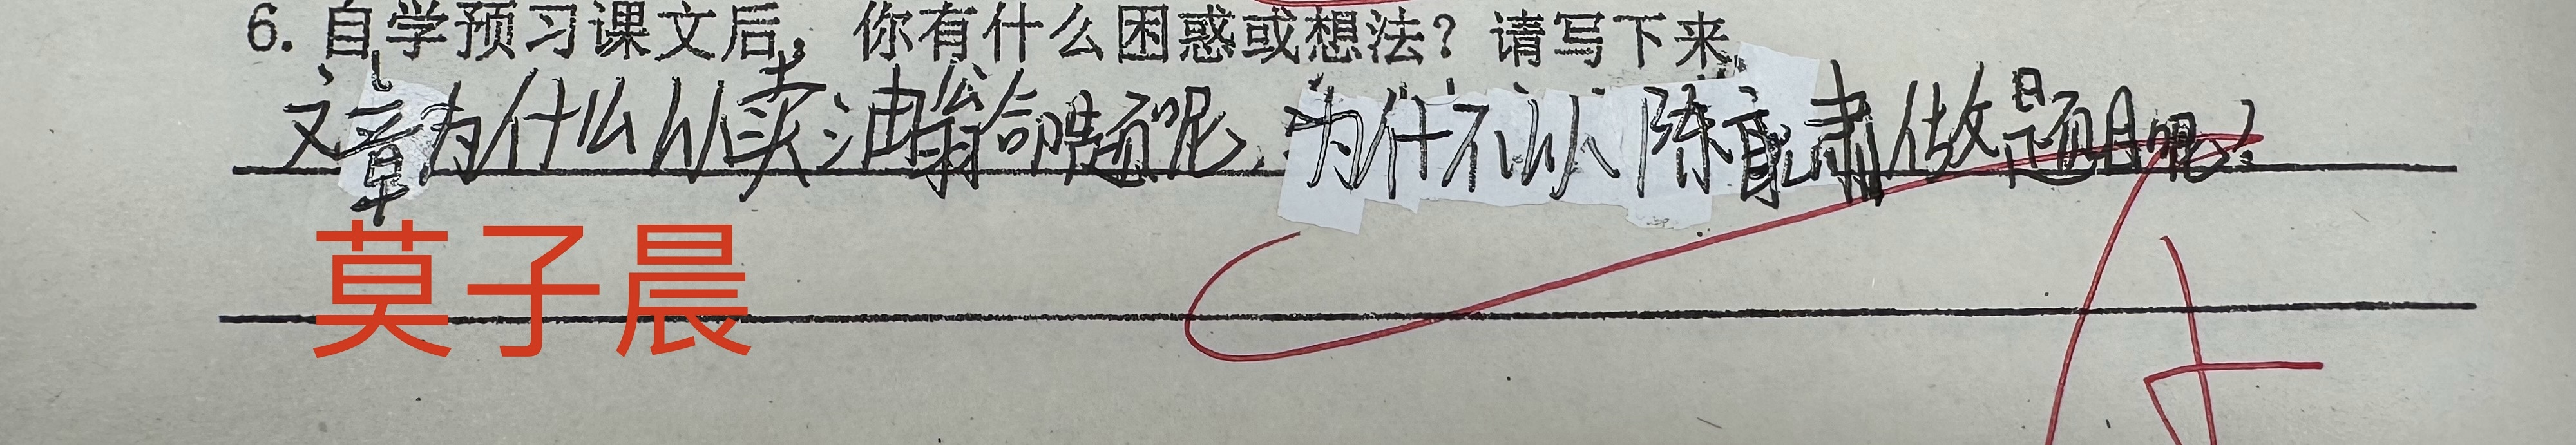 6. 自学预习课文后，你有什么困惑或想法？请写下来
文章为什么从卖油翁命题呢，为什不从陈尧肃做题目呢？
莫子晨
A